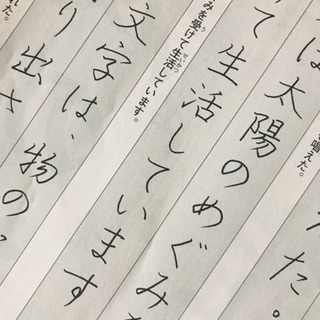 唱えた。
た。
は太陽のめぐみを
て生活しています
みを受けて生活しています。
文字は、物の
り出さ
れた。